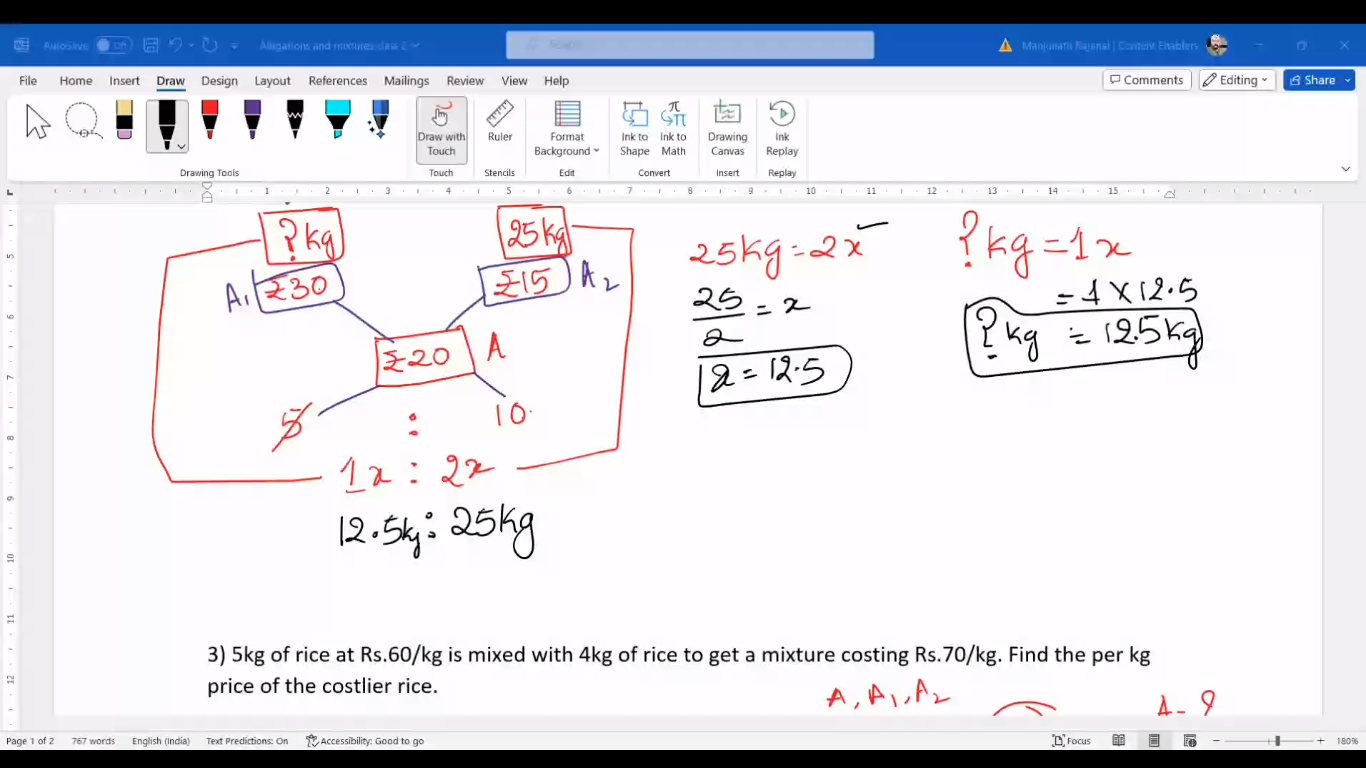 AutoSave Off Alligations and mixtures class 2 Search Manjunath Rajanal | Content Enablers
File Home Insert Draw Design Layout References Mailings Review View Help Comments Editing Share
Draw with Touch Ruler Format Background Ink to Shape Ink to Math Drawing Canvas Ink Replay
Drawing Tools Touch Stencils Edit Convert Insert Replay
1 2 3 4 5 6 7 8 9 10 11 12 13 14 15
5 6 7 8 9 10 11 12
?kg 25kg
A1 ₹30 ₹15 A2
₹20 A
5 : 10
1x : 2x
12.5kg : 25kg
25kg = 2x
25/2 = x
x = 12.5
?kg = 1x
= 1 X 12.5
?kg = 12.5kg
3) 5kg of rice at Rs.60/kg is mixed with 4kg of rice to get a mixture costing Rs.70/kg. Find the per kg
price of the costlier rice.
A, A1, A2
Page 1 of 2 767 words English (India) Text Predictions: On Accessibility: Good to go Focus 180%